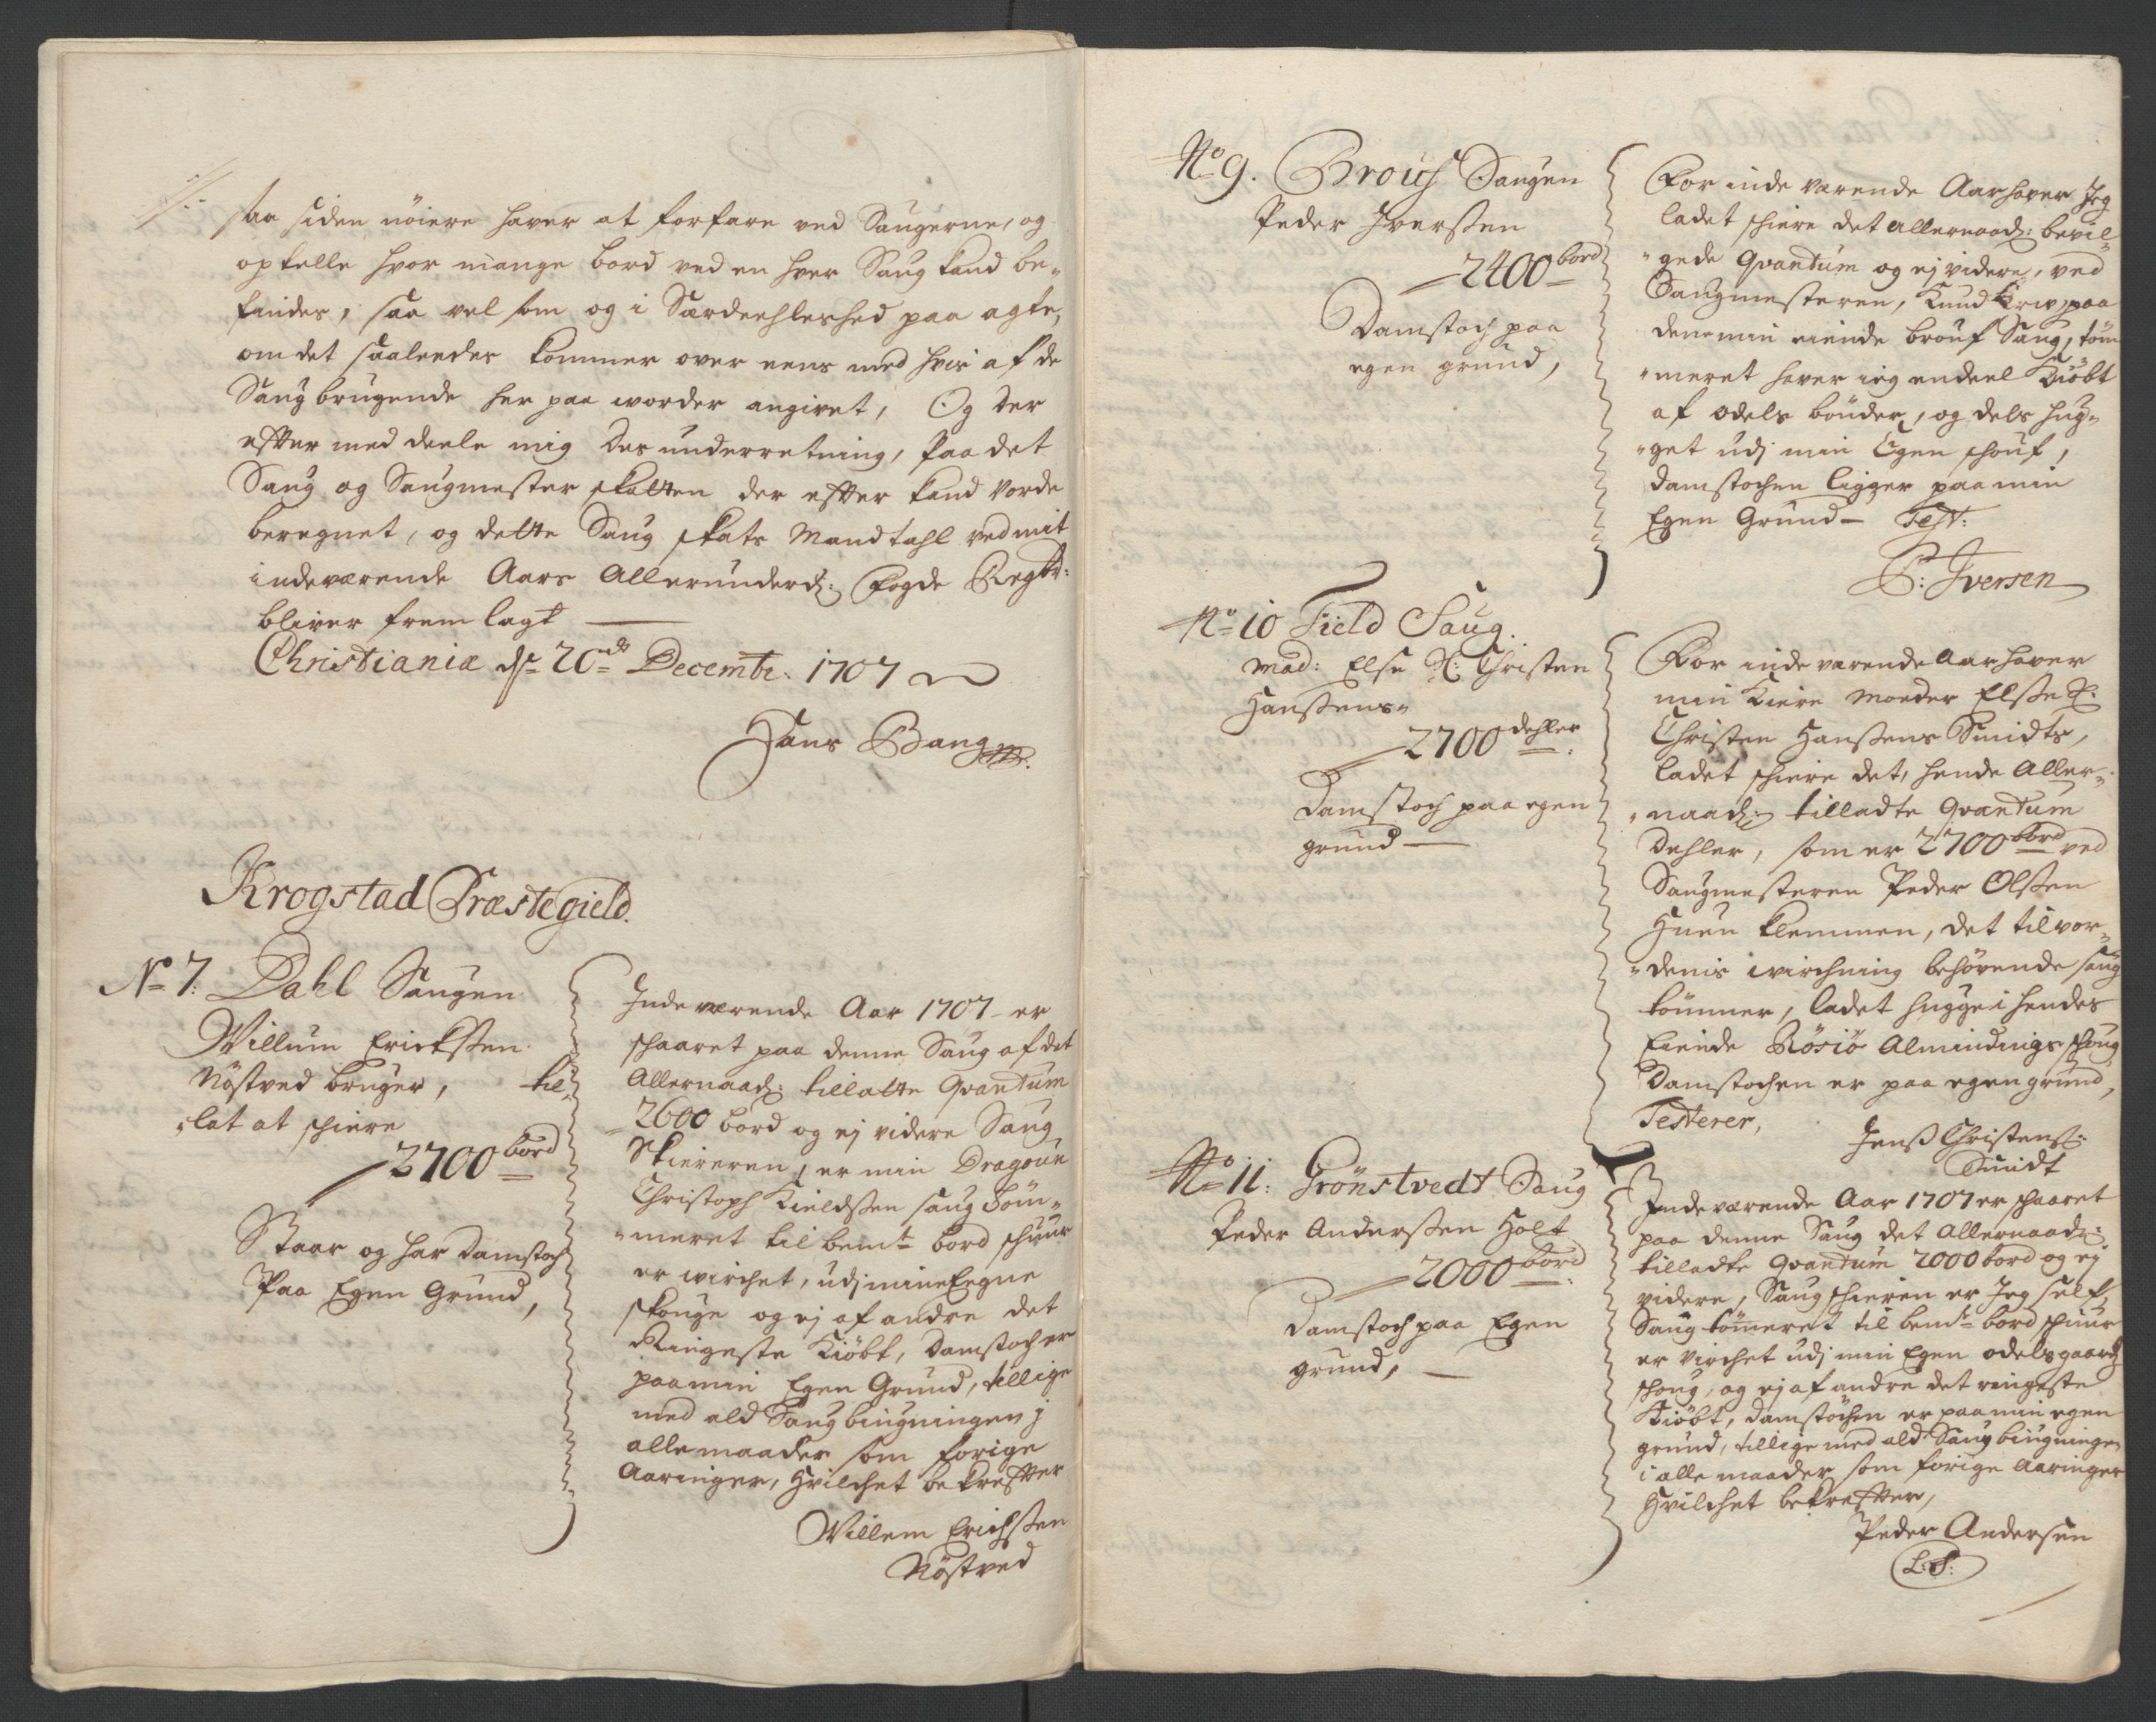 saa siden nöiere haver at forfare ved Saugerne, og
optelle hvor mange bord ved en hver Saug kand be-
findes, saa vel som og i Særdeehleshed paa agte,
om det saaleedes kommer over eens med hvis af de
Saugbrugende her paa worder angivet, Og der
efter med deele mig des underretning, Paa det
Saug og Saugmester skatten der efter kand vorde
beregnet, og dette Saug skats Mandtahl ved mit
indeværende Aars Allerunderd: Fogde Regtb:
bliver frem lagt
Christianiæ d: 20de Decembr: 1707
Hans Bang
Krogstad Præstegield.
No 7: Dahl Saugen
Willum Erichssen
Nöstved bruger, til-
lat at schiere
2700 bord
Staar og har damstoch
Paa Egen Grund,
Indeværende Aar 1707 er
schaaret paa denne Saug af det
Allernaad: tillatte Qvantum
2600 bord og ej videre Saug
Skiereren, er min Dragoun
Christoph Kieldssen saug Töm-
meret til bemte bord schuur
er wirchet, udj mine Eegne
skouge og ej af andre det
Ringeste Kiöbt, damstoch er
paa min Egen Grund, tillige
med ald Saugbiugningen j
alle maader som forige
Aaringer, Hvilchet bekrefter
Willem Erichssen
Nöstved
No 9. Brouf Saugen
Peder Iverssen
2400 bord
Damstoch paa
egen grund,
For inde værende Aar haver Jeg
ladet schiere det allernaad: bevil-
gede Qvantum og ej videre, ved
Saugmesteren, Knud paa
denne min eiende brouf Saug, töm-
meret haver ieg endeel Kiöbt
af odels bönder, og dels hug-
get udj min Egen schouf,
damstochen ligger paa min
Egen Grund - Test:
P: Iversen
No 10 Field Saug.
Mad: Else Sl: Christen
Hanssens
2700 dehler
Damstoch paa egen
grund
For inde værende Aar haver
min Kiere Moeder Elsse Sl:
Christen Hanssens Smidts,
ladet schiere det, hende Aller-
naad: tilladte Qvantum
Dehler, som er 2700 bord ved
Saugmesteren Peder Olssen
Huen Klemmen, det til vor-
denis wirchning behövende saug
tömmer, ladet hugge i hendes
Eiende Rösiö Almindings schoug
Damstochen er paa egen grund,
Testerer,
Jens Christenss:
Smidt
No 11: Grönstvedt Saug
Peder Anderssen Holt
2000 bord
Damstoch paa Egen
grund,
Indeværende Aar 1707 er schaaret
paa denne Saug det Allernaad:
tilladte Qvantum 2000 bord og ej
videre, Saug schieren er Jeg self,
Saug tömmeret til bemte bord schuur
er virchet udj min Egen odelsgaards
schoug, og ej af andre det ringeste
Kiöbt, damstochen er paa min egen
grund, tillige med ald Saug biugningen
i alle maader som forige Aaringer
Hvilchet bekrefter,
Peder Andersen
L:S: